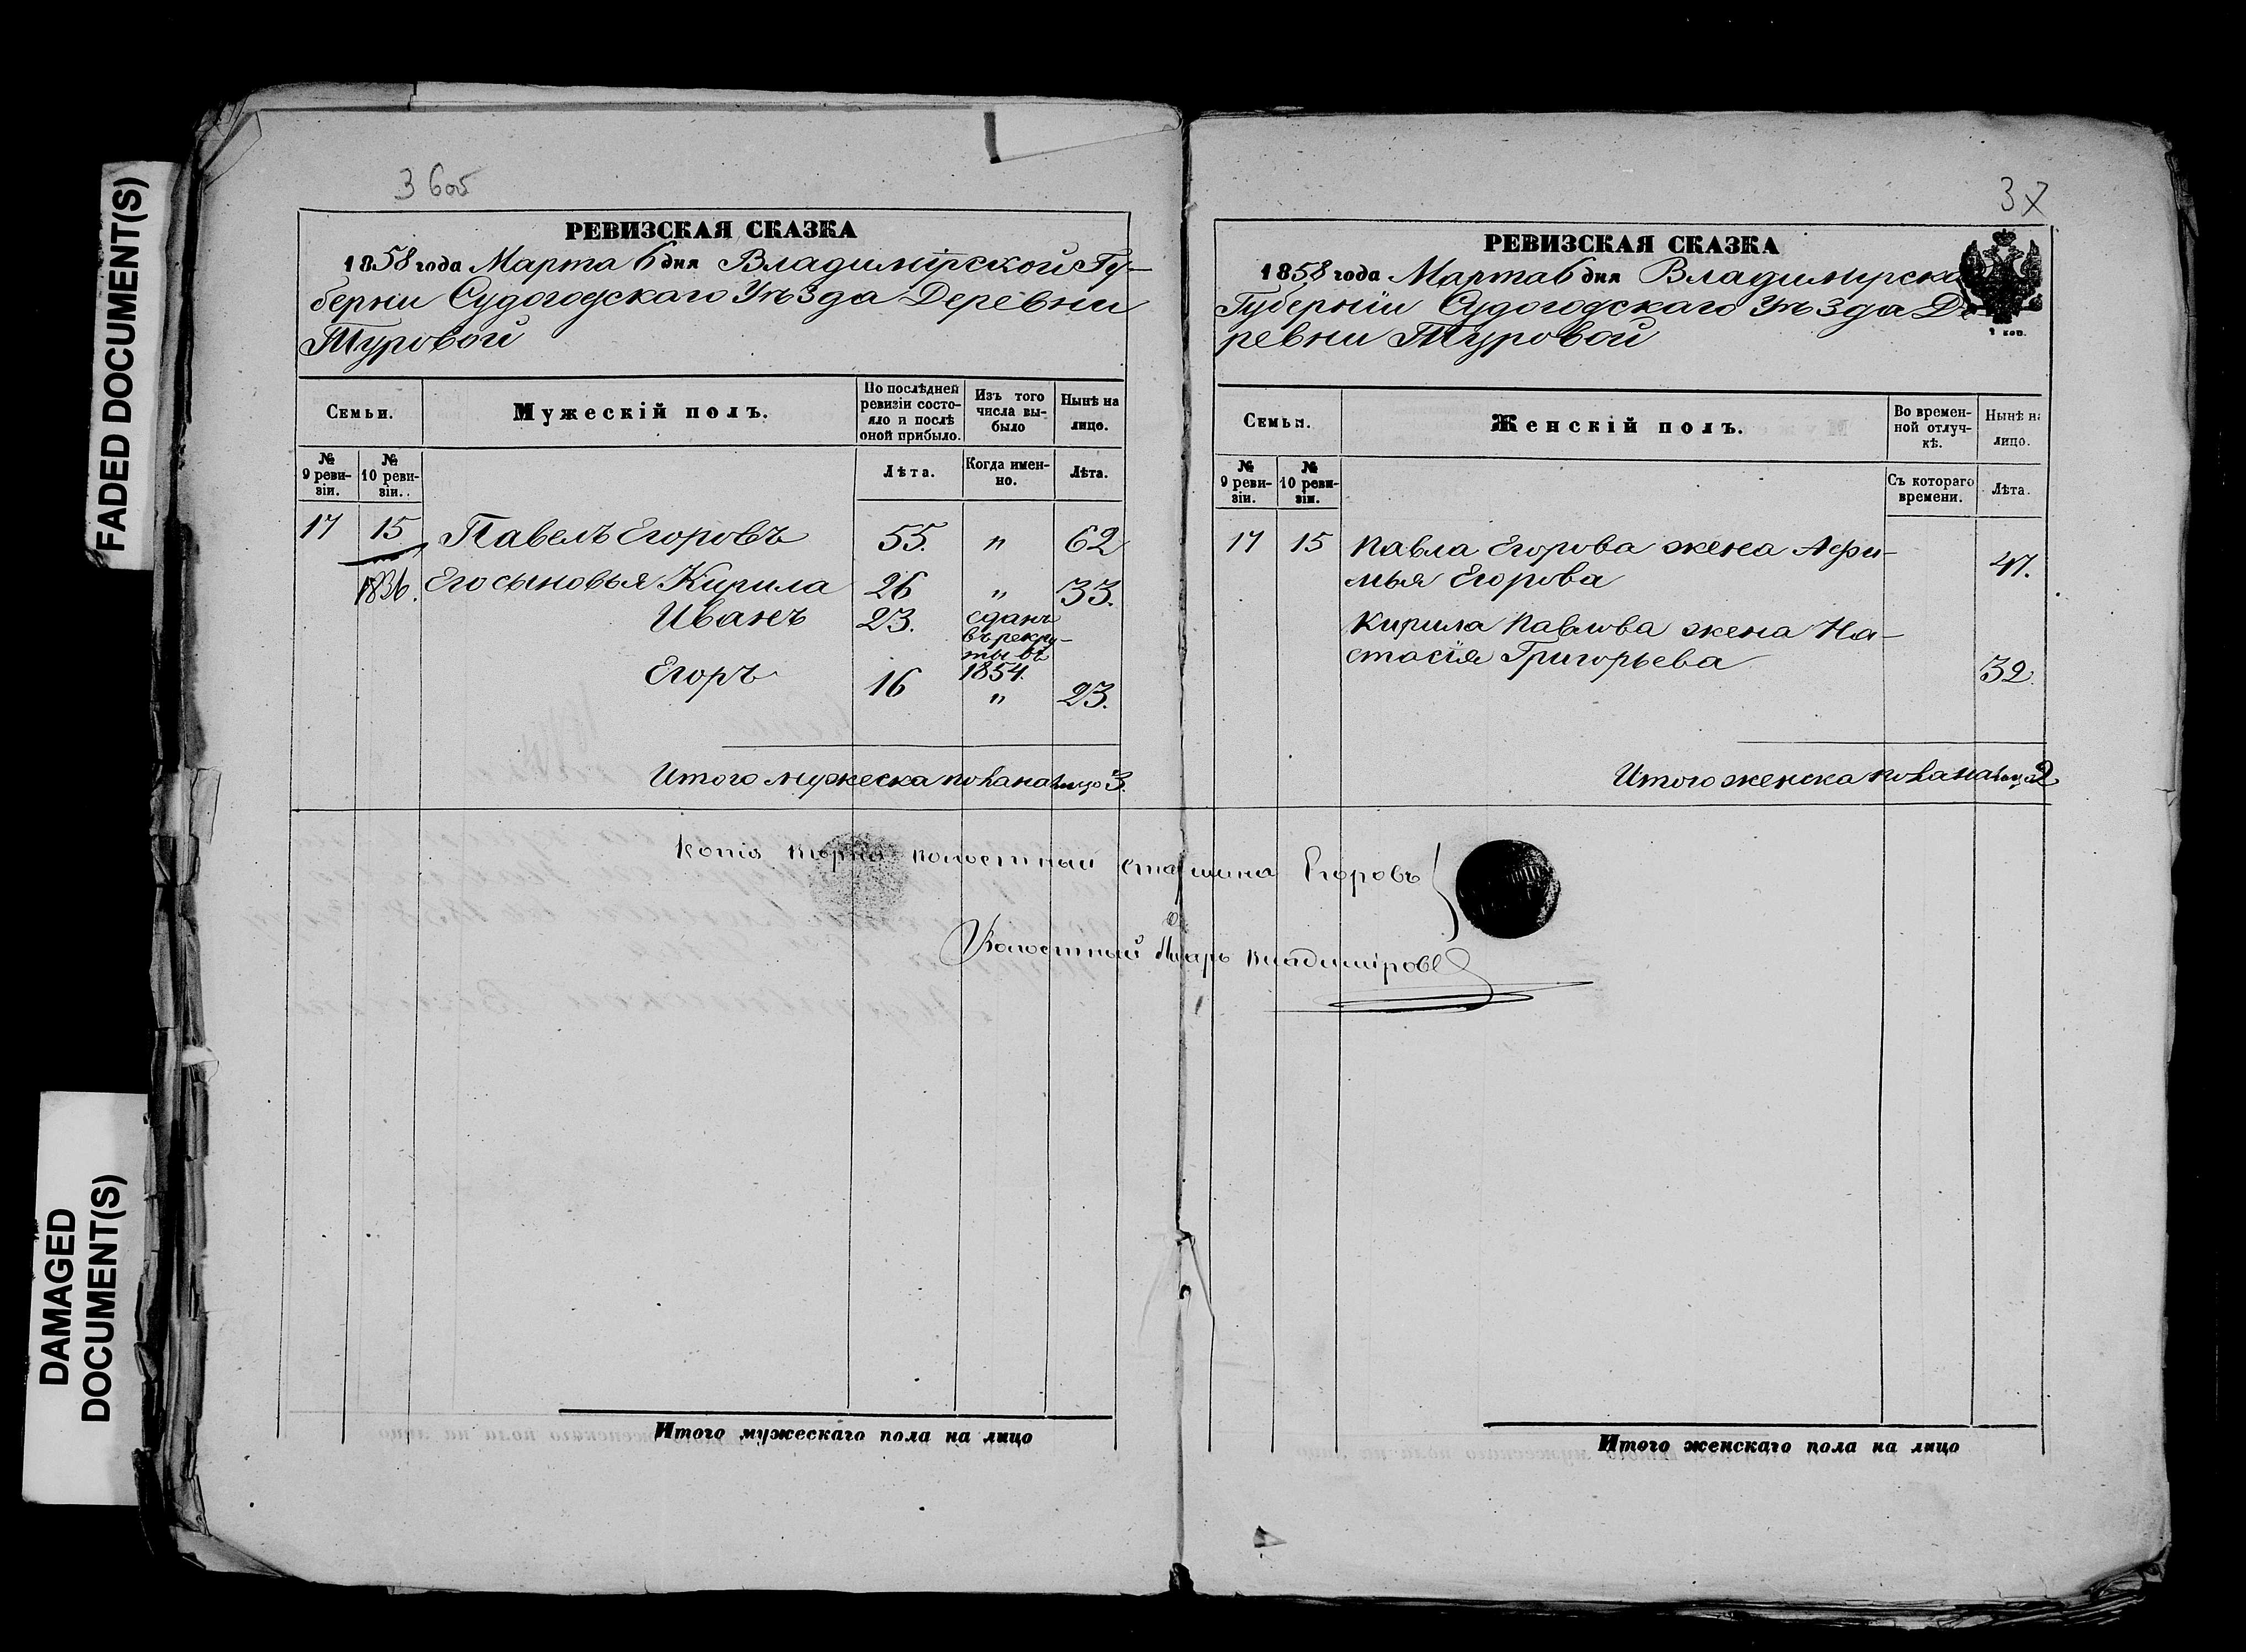 FADED DOCUMENT(S)
DAMAGED
DOCUMENT(S)
3 6 об
РЕВИЗСКАЯ СКАЗКА
1858 года Марта 6 дня Владимірской Гу-
берніи Судогодскаго Уѣзда Деревни
Туровой
Семьи.
Мужескій полъ.
По послѣдней ревизіи состояло и послѣ оной прибыло.
Изъ того числа выбыло
Нынѣ на лицо.
№ 9 ревизіи.
№ 10 ревизіи.
Лѣта.
Когда именно.
Лѣта.
17 15 Павелъ Егоровъ 55. " 62
1836. Его сыновья Кирила 26 " 33.
Иванъ 23. сданъ
въ рекру-
ты въ
1854.
Егоръ 16 " 23.
Итого мужеска пола на лицо 3.
Итого мужескаго пола на лицо
37
РЕВИЗСКАЯ СКАЗКА
1858 года Марта 6 дня Владимирско
Губерніи Судогодскаго Уѣзда Де
ревни Туровой
1 коп.
Семьи.
Женскій полъ.
Во времен-
ной отлуч-
кѣ.
Нынѣ на
лицо.
№ 9 ревизіи.
№ 10 ревизіи.
Съ котораго
времени.
Лѣта.
17 15 Павла Егорова жена Афи-
мья Егорова 47.
Кирила Павлова жена На-
стасія Григорьева 32.
Итого женска пола на лицо 2
Копія волостный старшина Егоровъ
Волостный Писарь Владиміровъ
Итого женскаго пола на лицо